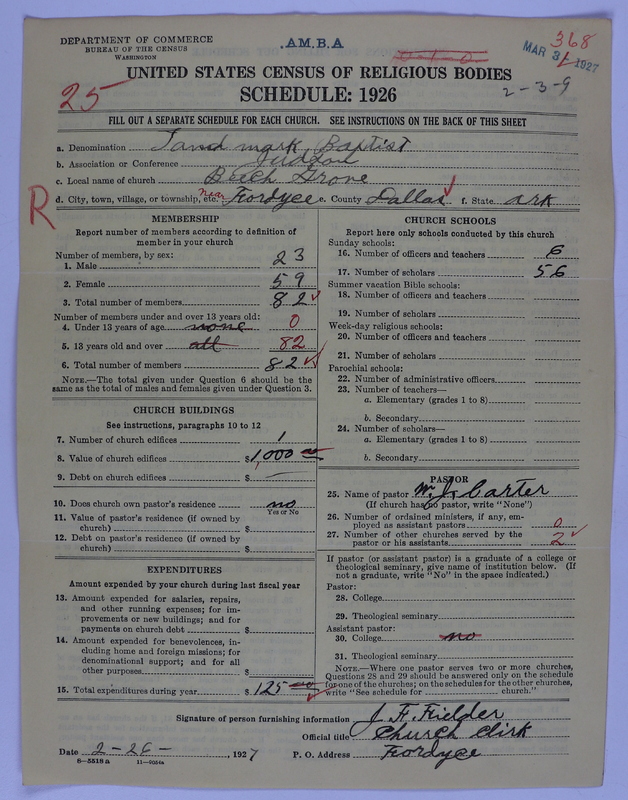 DEPARTMENT OF COMMERCE
BUREAU OF THE CENSUS
WASHINGTON
.A.M.B.A
368
MAR 31 1927
0-1-0
2-3-9
UNITED STATES CENSUS OF RELIGIOUS BODIES
25
SCHEDULE: 1926
FILL OUT A SEPARATE SCHEDULE FOR EACH CHURCH. SEE INSTRUCTIONS ON THE BACK OF THIS SHEET
a. Denomination Land mark Baptist
b. Association or Conference Judson
c. Local name of church Beech Grove
R
d. City, town, village, or township, etc. near Fordyce e. County Dallas f. State Ark
MEMBERSHIP
Report number of members according to definition of
member in your church
Number of members, by sex:
1. Male 23
2. Female 59
3. Total number of members 82
Number of members under and over 13 years old:
4. Under 13 years of age none 0
5. 13 years old and over all 82
6. Total number of members 82
NOTE.—The total given under Question 6 should be the
same as the total of males and females given under Question 3.
CHURCH BUILDINGS
See instructions, paragraphs 10 to 12
7. Number of church edifices 1
8. Value of church edifices $1,000 00
9. Debt on church edifices $ —
10. Does church own pastor's residence no
Yes or No
11. Value of pastor's residence (if owned by
church) $
12. Debt on pastor's residence (if owned by
church) $
EXPENDITURES
Amount expended by your church during last fiscal year
13. Amount expended for salaries, repairs,
and other running expenses; for im-
provements or new buildings; and for
payments on church debt $
14. Amount expended for benevolences, in-
cluding home and foreign missions; for
denominational support; and for all
other purposes $
15. Total expenditures during year $125 00
CHURCH SCHOOLS
Report here only schools conducted by this church
Sunday schools:
16. Number of officers and teachers 6
17. Number of scholars 56
Summer vacation Bible schools:
18. Number of officers and teachers
19. Number of scholars
Week-day religious schools:
20. Number of officers and teachers
21. Number of scholars
Parochial schools:
22. Number of administrative officers
23. Number of teachers—
a. Elementary (grades 1 to 8)
b. Secondary
24. Number of scholars—
a. Elementary (grades 1 to 8)
b. Secondary
PASTOR
25. Name of pastor W. J. Carter
(If church has no pastor, write "None")
26. Number of ordained ministers, if any, em-
ployed as assistant pastors 0
27. Number of other churches served by the
pastor or his assistants 2
If pastor (or assistant pastor) is a graduate of a college or
theological seminary, give name of institution below. (If
not a graduate, write "No" in the space indicated.)
Pastor:
28. College
29. Theological seminary
Assistant pastor:
30. College no
31. Theological seminary
NOTE.—Where one pastor serves two or more churches,
Questions 28 and 29 should be answered only on the schedule
for one of the churches; on the schedules for the other churches,
write "See schedule for church."
Signature of person furnishing information J. F. Fielder
Official title Church Clirk
Date 2-26-, 1927 P. O. Address Fordyce
8-5518a 11-9054a